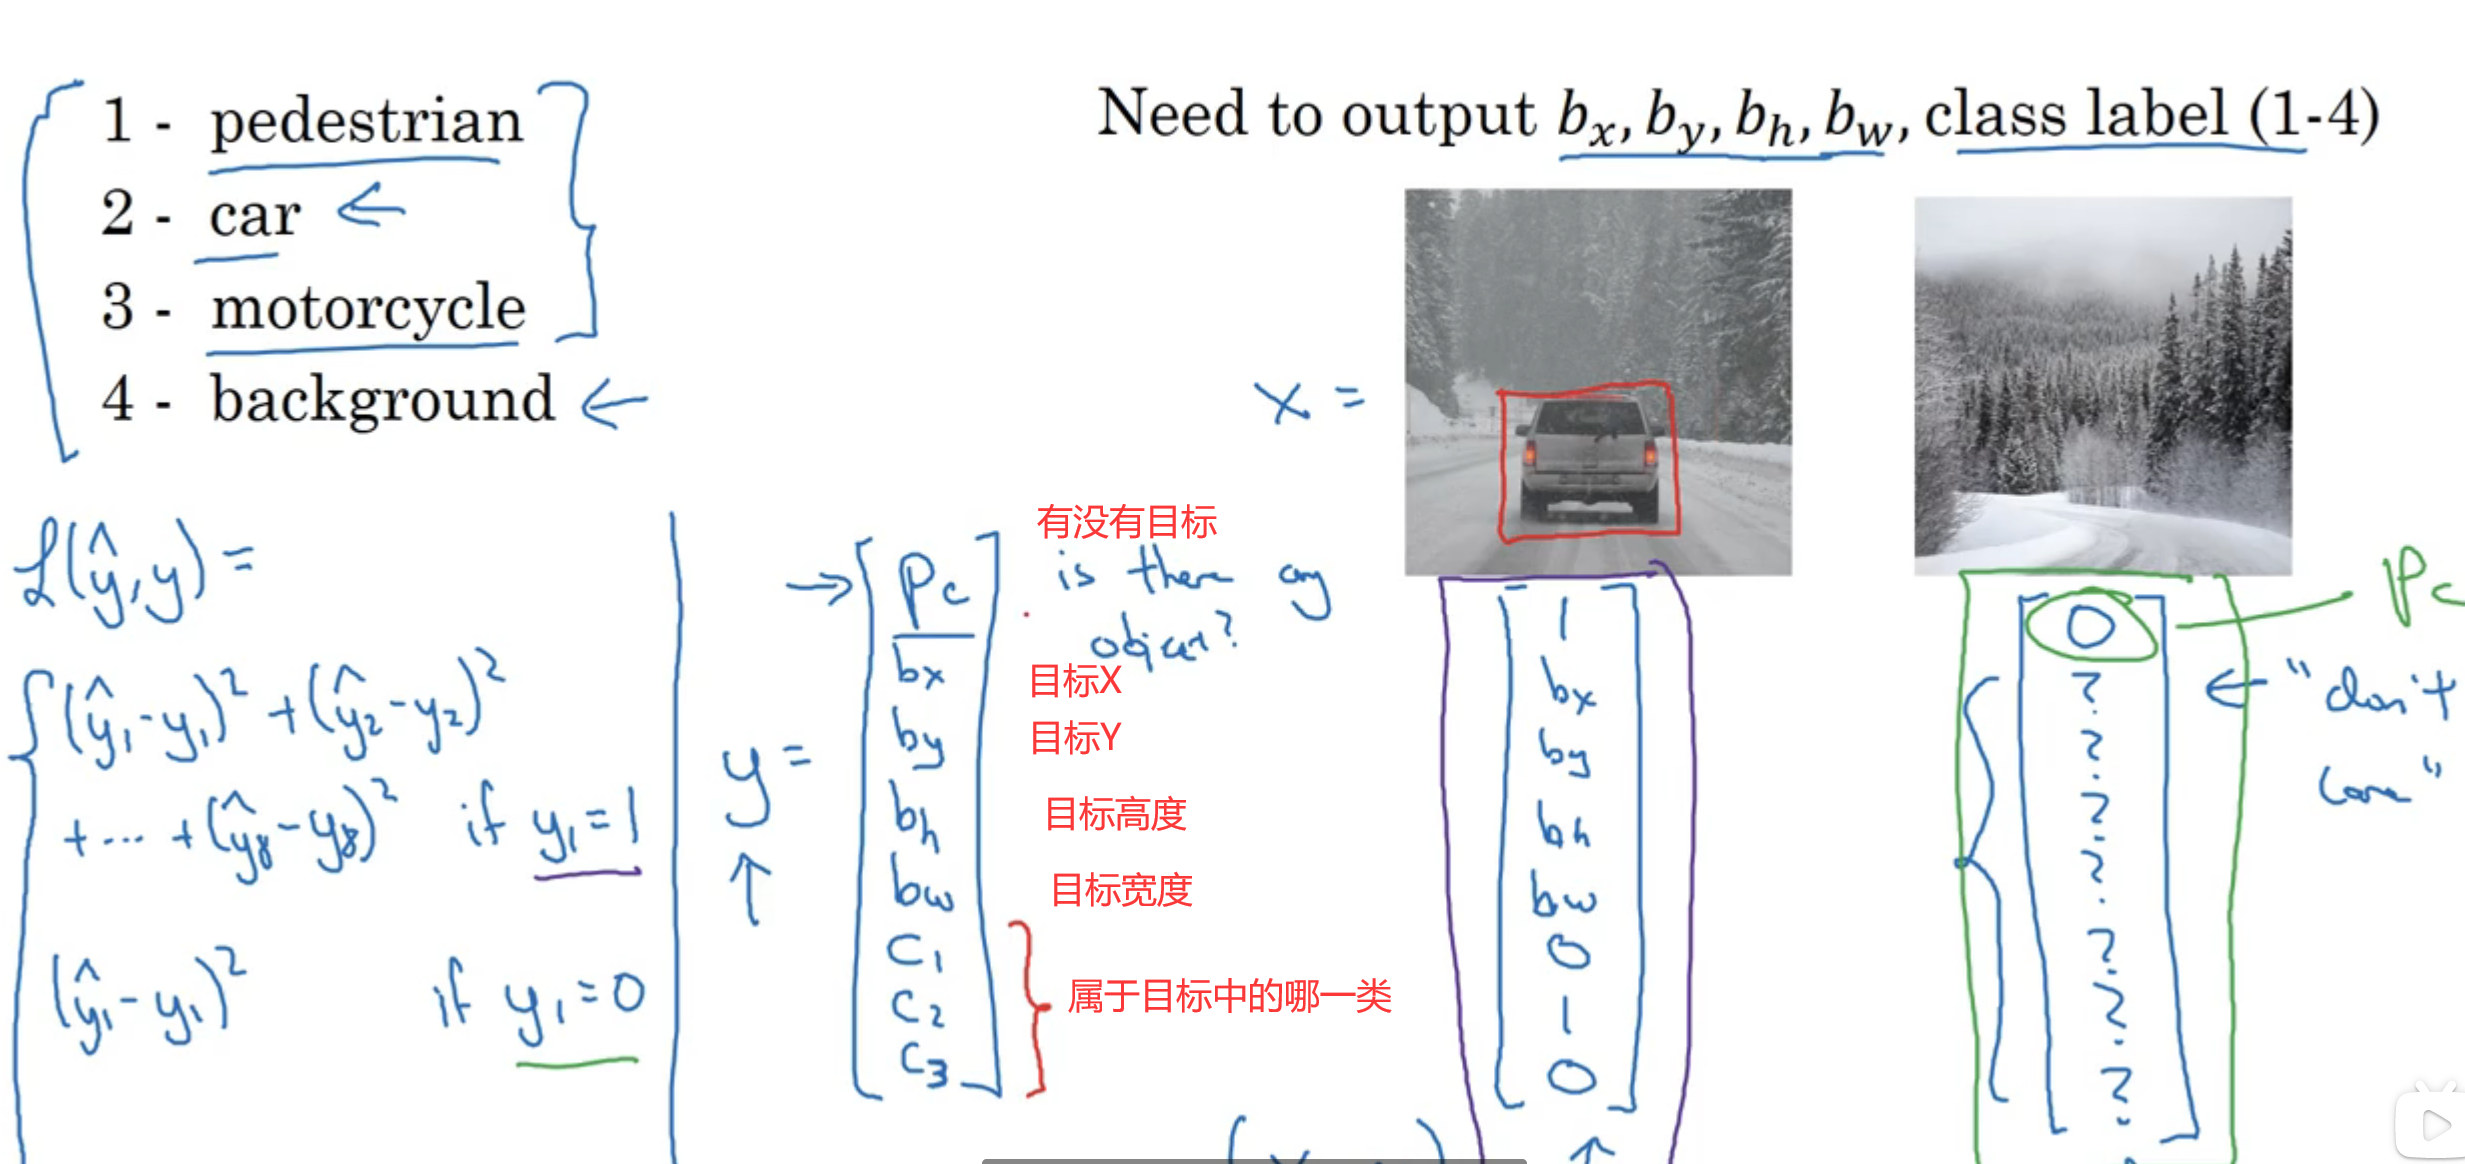 1 - pedestrian
2 - car
3 - motorcycle
4 - background
Need to output bx, by, bh, bw, class label (1-4)
x =
ℒ(ŷ, y) =
(ŷ₁ - y₁)² + (ŷ₂ - y₂)²
+ ... + (ŷ₈ - y₈)² if y₁ = 1
(ŷ₁ - y₁)² if y₁ = 0
y =
Pc
bx
by
bh
bw
C1
C2
C3
有没有目标
is there any
object?
目标X
目标Y
目标高度
目标宽度
属于目标中的哪一类
1
bx
by
bh
bw
0
1
0
0
?
?
?
?
?
?
?
Pc
"don't
care"